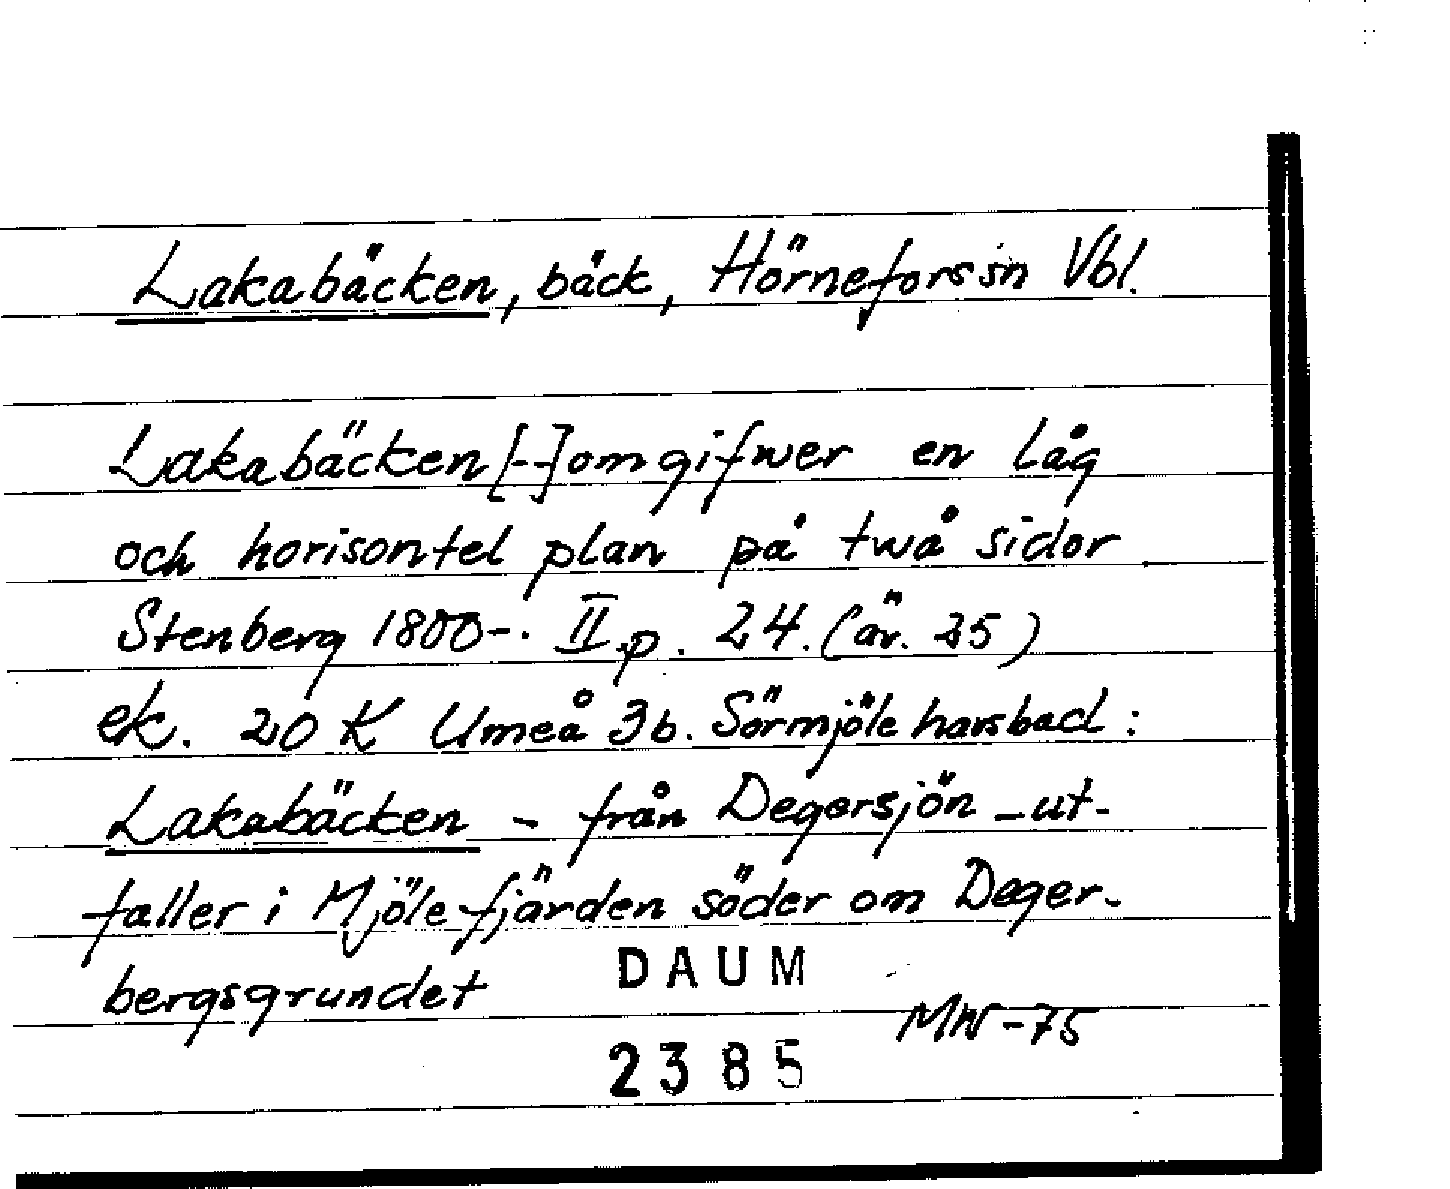 Lakabäcken, bäck, Hörneforssn Vbl.
Lakabäcken [--] omgifwer en låg
och horisontel plan på twå sidor
Stenberg 1800-. II p. 24. (äv. 25)
ek. 20 K Umeå 3b. Sörmjöle havsbad:
Lakabäcken - från Degersjön - ut-
faller i Mjölefjärden söder om Deger-
bergsgrundet
DAUM
MW-75
2385